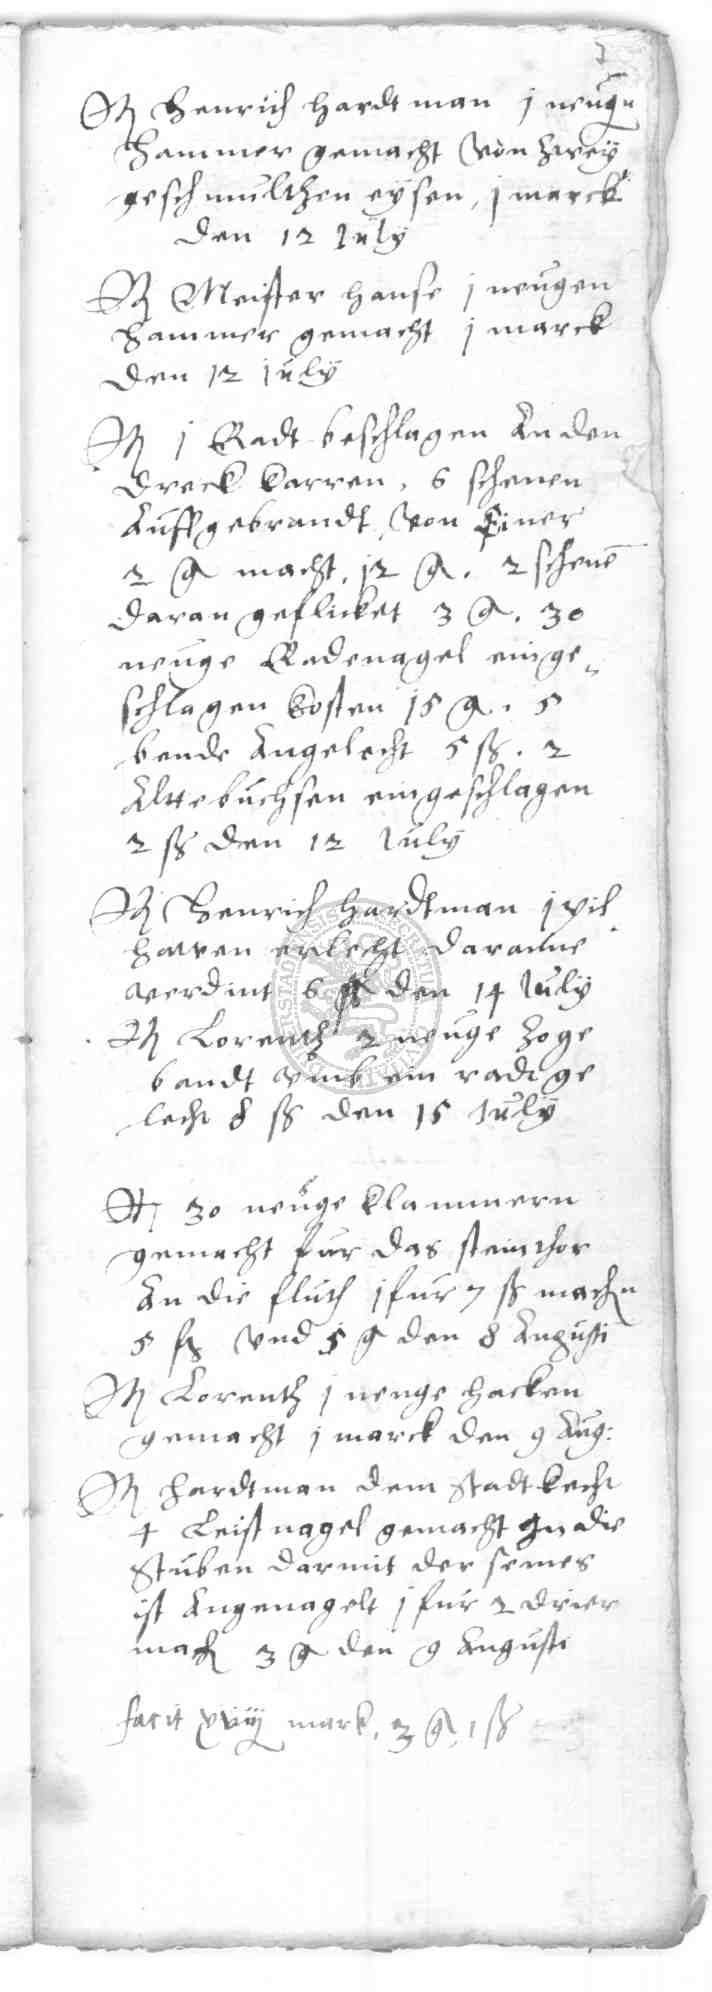 It Henrich hardtman j neugen
Hammer gemacht von zweÿ
geschmultzen eÿsen, j marck
den 12 Julÿ
It Meister hanse j neugen
Hammer gemacht j marck
den 12 julÿ
It j Radt beschlagen An den
dreck karren, 6 schenen
Auffgebrandt, von Einer
2 g macht, 12 g. 2 schenen
daran geflicket 3 g. 30
neuge Radenagel einge„
schlagen kosten 15 g. 5
bende Angelecht 5 ß. 2
Altte buchsen eingeschlagen
2 ß den 12 Julÿ
It Henrich hardtman j
hawen erlecht daranne
verdint 6 ß den 14 Julÿ
It Lorentz 2 neuge Zoge
bandt vmb ein radt ge
lecht 8 ß den 15 Julÿ
It 30 neuge klammern
gemacht fur das steinthor
An die fluth j fur 7 ß machen
5 und 5 g den 8 Augusti
It Lorentz j neuge hacken
gemacht j marck den 9 Aug:
It hardtman dem Stadtkecht
4 Leistnagel gemacht In die
Stuben darmit der semes
ist Angenagelt j fur 2 drier
mach 3 g den 9 Augusti
facit xvij mark, 3 g, 1 ß